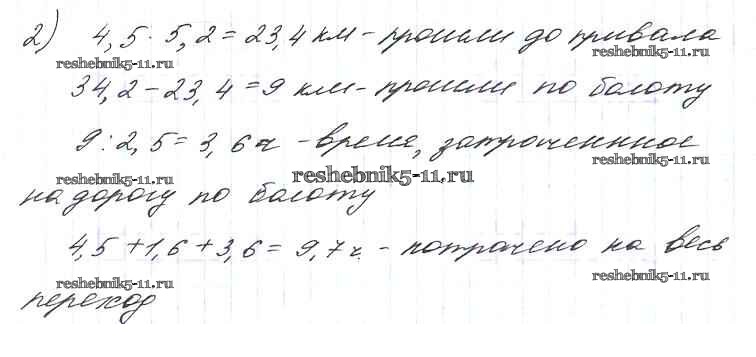 2) 4,5 · 5,2 = 23,4 км - прошли до привала
reshebnik5-11.ru reshebnik5-11.ru
34,2 - 23,4 = 9 км - прошли по болоту
9 : 2,5 = 3,6 ч - время, затраченнное
reshebnik5-11.ru reshebnik5-11.ru reshebnik5-11.ru
на дорогу по болоту
4,5 + 1,6 + 3,6 = 9,7 ч. - потрачено на весь
reshebnik5-11.ru reshebnik5-11.ru
переход